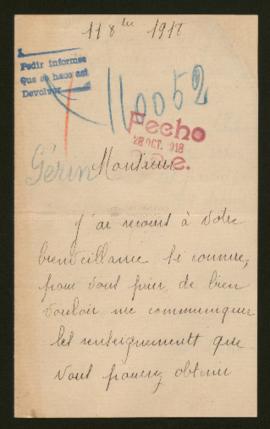 11 8bre 1917
Pedir informes
Que se haco asi
Devolver
110052
Fecho
28 OCT. 1918
e.
Gérin
Monsieur
J'ai recours à votre
bienveillance si connue,
pour vous prier de bien
vouloir me communiquer
les renseignements que
vous pourrez obtenir